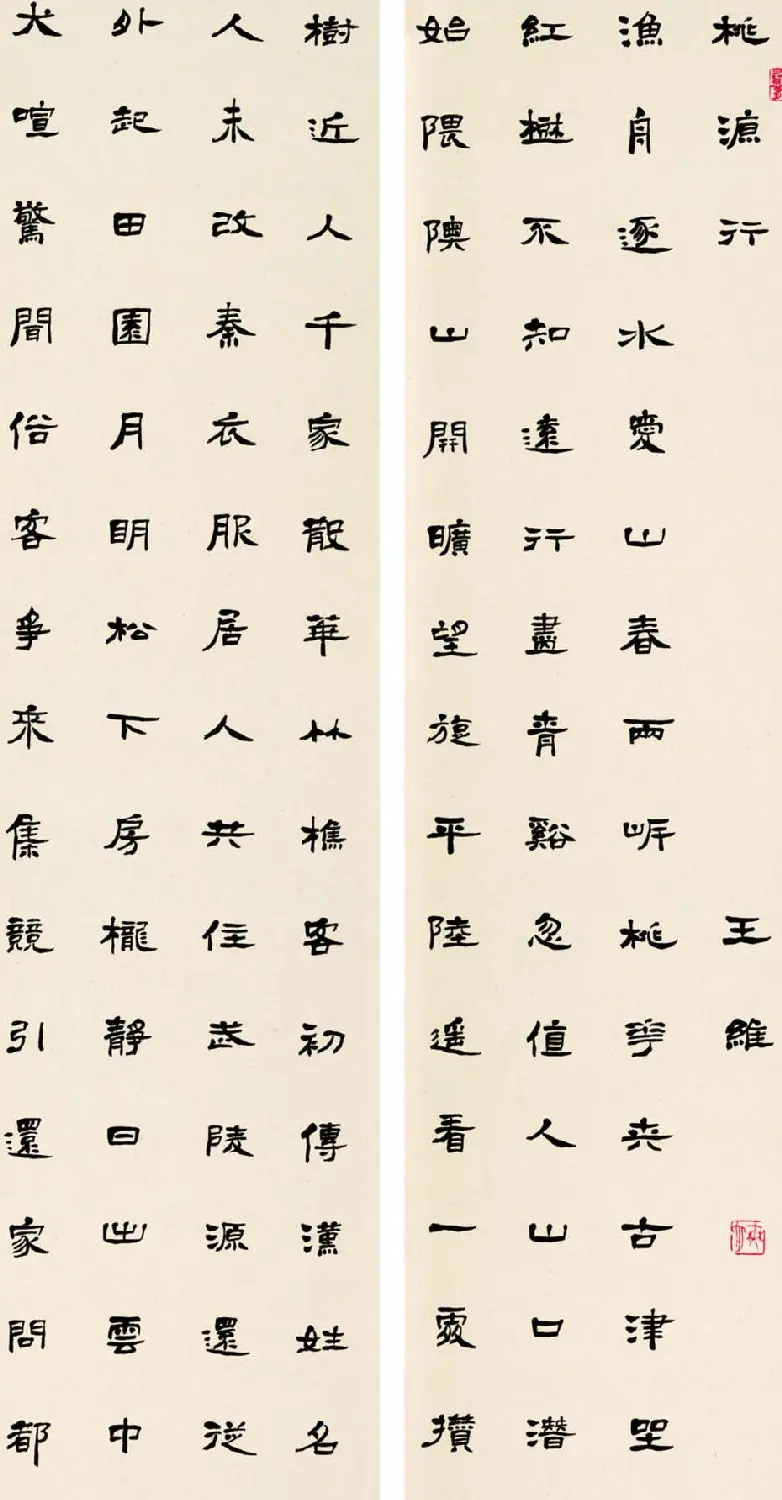 桃源行 王維
漁舟逐水愛山春兩岸桃華夾古津坐
紅樹不知遠行盡青谿忽值人山口潛
始隈隩山開曠望旋平陸遙看一處攢
樹近入千家散華竹樵客初傳漢姓名
人未改秦衣服居人共住武陵源還從
外起田園月明松下房櫳靜日出雲中
犬喧驚聞俗客爭來集競引還家問都